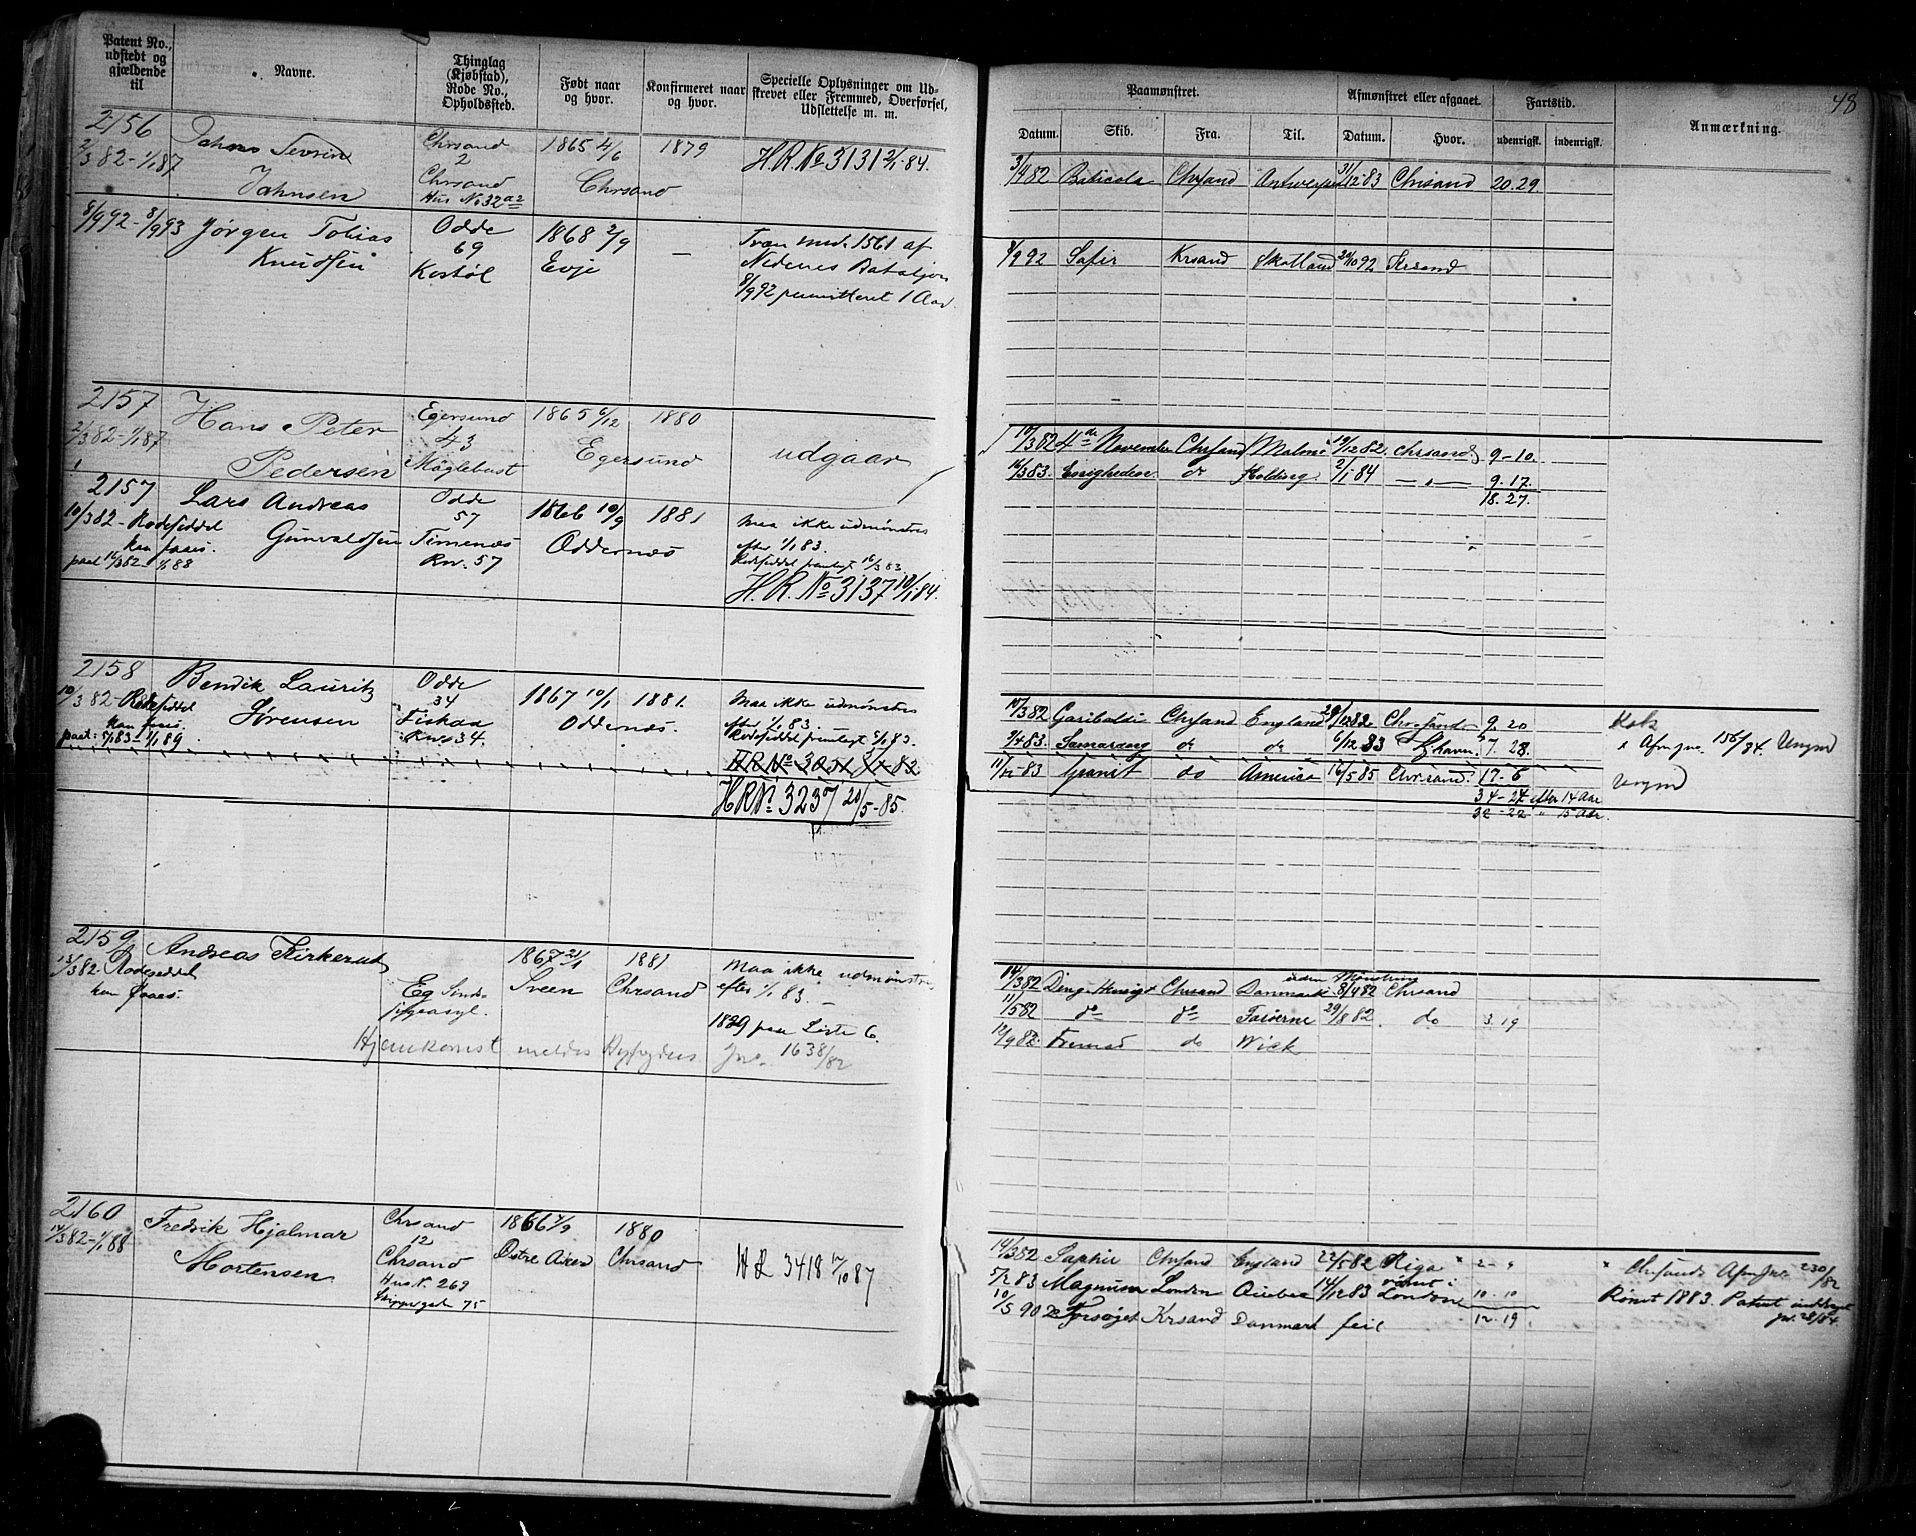 48
Patent No., udstedt og gjældende til
Navne.
Thinglag (Kjøbstad), Rode No., Opholdssted.
Født naar og hvor.
Konfirmeret naar og hvor.
Specielle Oplysninger om Udskrevet eller Fremmed, Overførsel, Udslettelse m. m.
Paamønstret.
Afmønstret eller afgaaet.
Fartstid.
Anmærkning.
Datum. Skib. Fra. Til. Datum. Hvor. udenrigsk. indenrigsk.
2156
2/3 82 - 1/1 87
Jahns Sevrin
Jahnsen
Chrsand
2
Chrsand
Hus No 32 a2
1865 4/6
Chrsand
1879
H.R. No 3131 2/1-84.
3/4 82 Baticola Chrsand Antwerpen 31/12-83 Chrsand 20.29
8/9 92 - 8/9 93
Jørgen Tobias
Knudsen
Odde
69
Kostøl
1868 2/9
Evje
—
Træn med. 1561 af
Nedenes Bataljon
8/9 92 permitteret 1 Aar.
8/9 92 Safir Krsand Skotland 29/10 92 Krsand
2157
2/3 82 - 1/1 87
Hans Peter
Pedersen
Egersund
43
Møglebust
1865 6/12
Egersund
1880
udgaar
2157
10/3 82 - Rodeseddel
kan faaes.
paat 16/3 82 - 1/1 88
Lars Andreas
Gunvaldsen
Odde
57
Timenæs
Rno. 57
1866 10/9
Oddernæs
1881
Maa ikke udmønstres
efter 1/1 83.
Rodeseddel fremlagt 16/3 83.
H.R. No 3137 10/1 84.
10/3 82 4de November Chrsand Malmö 19/12 82 Chrsand 9-10.
16/3 83. Enigheden do Kolding 2/1 84 — " — 9.17
18.27.
2158
10/3 82 - Rodeseddel
kan faaes
paat: 5/1 83 - 1/1 89
Bendik Lauritz
Sørensen
Odde
34
Fiskaa
Rno 34.
1867 10/1
Oddernæs.
1881.
Maa ikke udmønstres
efter 1/1 83
Rodeseddel fremlagt 5/1 83.
HRNo 3237 20/5-85.
10/3 82 Garibaldi Chrsand England 29/12 82 Chrsand 9.20
9/4 83. Samarang do do 6/12 83 7.28.
11/12-83 Granit do America 16/5 85 Chrsand 17-6
34-24 efter 14 Aar
32-22 " 15 Aar.
156/84.
2159
13/3 82 - Rodeseddel
kan faaes.
Andreas Kirkerud
Eg Sinds-
sygeasyl.
1867 21/1
Sveen
1881
Chrsand
Maa ikke udmønstres
efter 1/1 83. —
1829 paa Liste 6.
Hjemkomst meldes Jno. 1638/82
14/3 82 Chrsand Danmark uden Mønstring 8/4 82 Chrsand
11/5 82 do do 29/8 82. do 3.19
12/9 82. Fremad do Wick
2160
14/3 82 - 1/1 88
Fredrik Hjalmar
Mortensen
Chrsand
12
Chrsand
Hus N. 269
Skippergade 75
1866 7/9
Østre Aker
1880
Chrsand
HR 3418 17/10 87
14/3 82 Saphir Chrsand England 22/5 82 Riga " 2 - " " Chrsands Afm Jno 230/82
5/2 83 Magnum London Quebec 14/12 83 rømt i London 10.10 Rømt 1883. Patent inddraget Jno. 28/84.
10/5 90 Forsøget Krsand Danmark feil 12.19